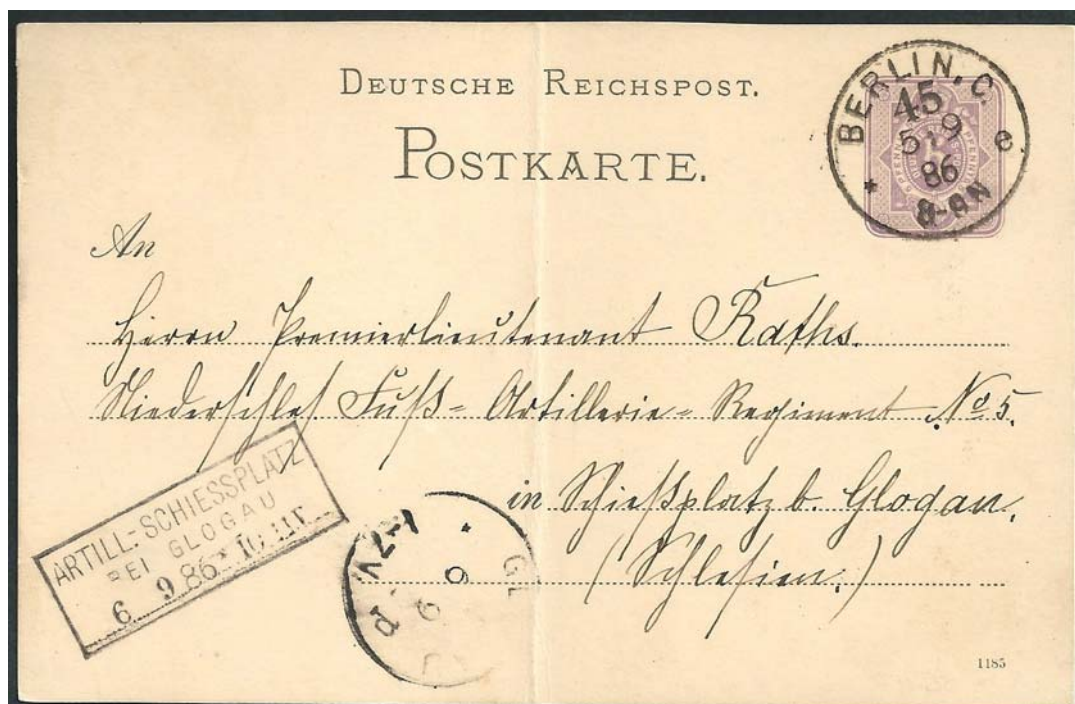 DEUTSCHE REICHSPOST.
POSTKARTE.
BERLIN, C.
45
5 9
86
8-9N
e.
An
Herrn Premierlieutenant Raths.
Niederschles Fuß- Artillerie- Regiment No 5.
in Schießplatz b. Glogau.
(Schlesien.)
ARTILL-SCHIESSPLATZ
BEI GLOGAU
6 9 86
GL
6
9
1185